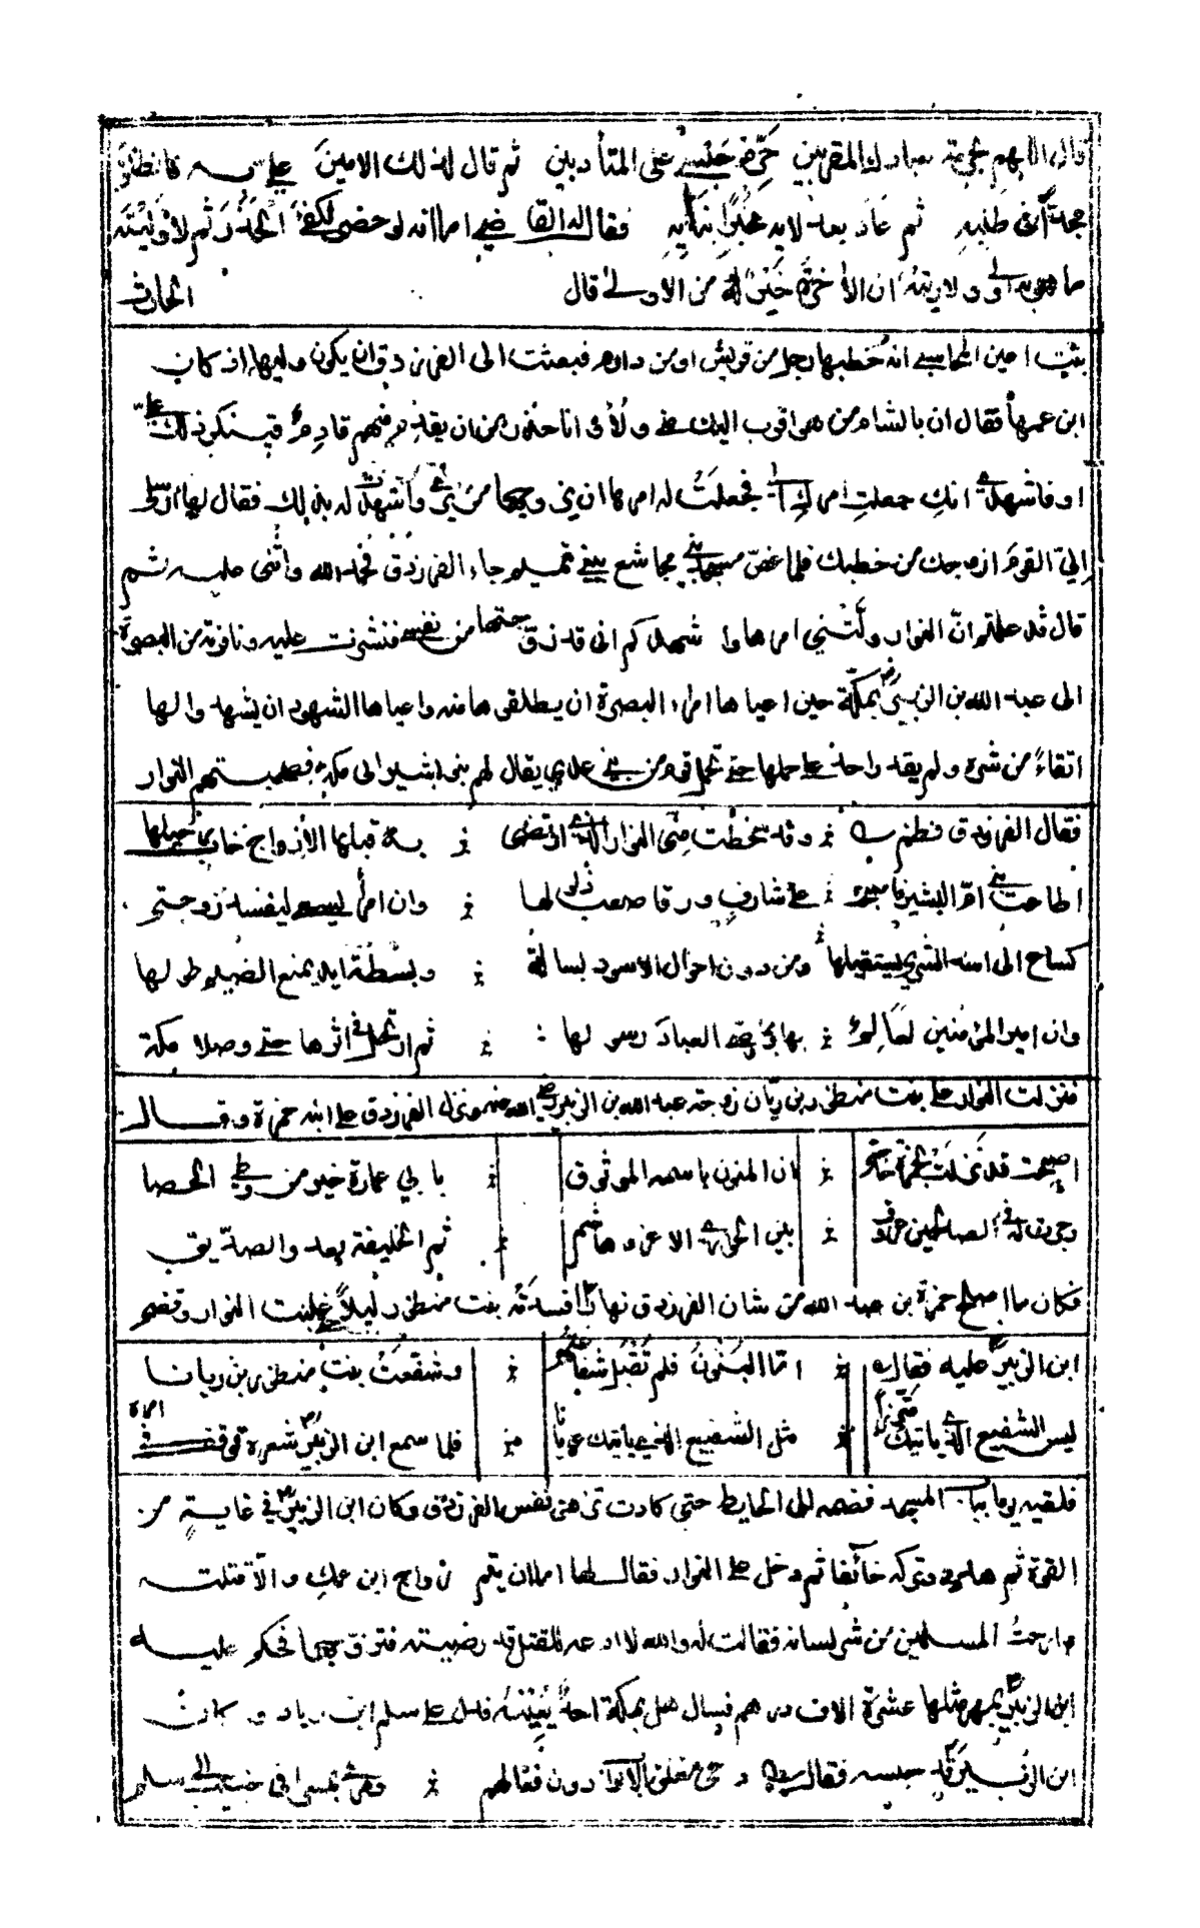 قال اللهم بحرمة عبادك المقربين حرّم حبسه على المتأدبين ثم قال لذلك الامين علي به فانطلق
مجدّا في طلبه ثم عاد بعد لايه مخبرا بنأيه فقال له القاضي اما انه لو حضر لكفي الحذر ثم لاوليته
ما هو به اولى ولاريته ان الاخرة خير له من الاولى قال الحارث
بنت اعين المجاشعي انه خطبها رجل من قريش او من دارم فبعثت الى الفرزدق ان يكون وليها اذ كان
ابن عمها فقال ان بالشام من هو اقرب اليك مني ولا انا من ان يقدم منهم قادم فينكر ذلك علي
او فاشهدي انك جعلت امرك الي فجعلت له امرها ان يزوجها من يرى واشهدت له بذلك فقال لها ارسلي
الي القوم ازوجك من خطبك فلما غص مسجد بني مجاشع بني تميم جاء الفرزدق فحمد الله واثنى عليه ثم
قال قد علمتم ان النوار ولتني امرها واشهدكم اني قد زوجتها من نفسي فنشزت عليه ونافرته من البصرة
الى عبد الله بن الزبير بمكة حين اعياها امراء البصرة ان يطلقوها منه واعياها الشهود ان يشهدوا لها
اتقاء من شره ولم يقدر احد على حملها حتى تحمل قوم من بني عدي يقال لهم بنو ام بشير الى مكة فصحبتهم النوار
فقال الفرزدق وقد سخطت مني النوار الذي ارتضى به قبلها الأزواج خاب رحيلها
اطاعت بني ام البشير فاصبحت على شارف ورقا صعب ذلولها وان امرأ يسعى ليفسد زوجتي
كساع الى اسد الشرى يستقيلها ومن دون احوال الاسود بسالة وبسطة ايد يمنع الضيم طولها
وان امير المؤمنين لعالم بها وصي العباد رسولها ثم ارتحل في اثرها حتى وصلا مكة
فنزلت النوار على بنت منظور بن زبّان زوجة عبد الله بن الزبير رضي الله عنه ونزل الفرزدق على ابنه حمزة وقال
اصبحت قد نزلت بحمزة حاجتي ان المنوه باسمه الموثوق بابي عمارة خير من وطئ الحصا
وجرت له في الصالحين عروق بين الحواري الاعز وهاشم ثم الخليفة بعد والصدّيق
فكان ما اصلح حمزة بن عبد الله من شان الفرزدق نهارا افسدته بنت منظور ليلاً حتى غلبت النوار وقضى
ابن الزبير عليه فقال امّا البنون فلم تقبل شفاعتهم وشفعت بنت منظور بن زبانا
ليس الشفيع الذي ياتيك متّزرا مثل الشفيع الذي ياتيك عريانا فلما سمع ابن الزبير شعره
فلقيه يوما بباب المسجد فضمه الى الحايط حتى كادت تزهق نفس الفرزدق وكان ابن الزبير في غاية من
القوة ثم وتركه خائفا ثم دخل على النوار فقال لها اما ان يتم زواج ابن عمك والا قتلته
وارحت المسلمين من شر لسانه فقالت له والله لا ادعه للقتل قد رضيته فتزوج بها فحكم عليه
ابن الزبير بمهر مثلها عشرة الاف درهم فسال هل بمكة احد يعينه فدل على سلم ابن زياد وكان
ابن الزبير قد حبسه فقال دون فقالهم سلم